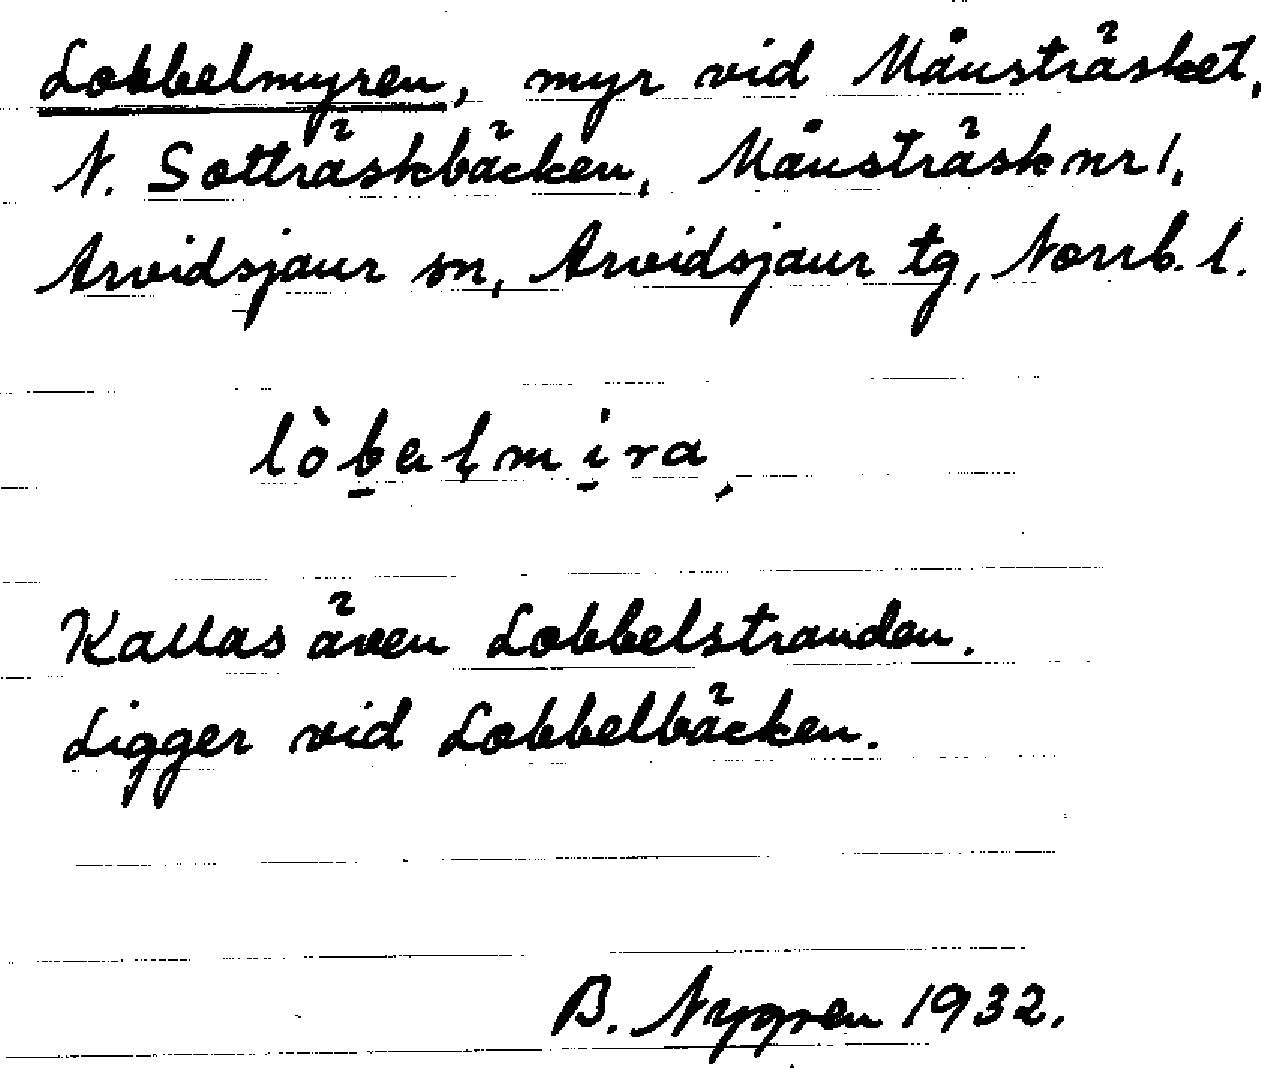 Lobbelmyren, myr vid Måusträsket,
N. Sotträskbäcken, Måusträsk nr 1,
Arvidsjaur sn, Arvidsjaur tg, Norrb. l.
lòbelmira,
Kallas även Lobbelstranden.
Ligger vid Lobbelbäcken.
B. Nygren 1932.